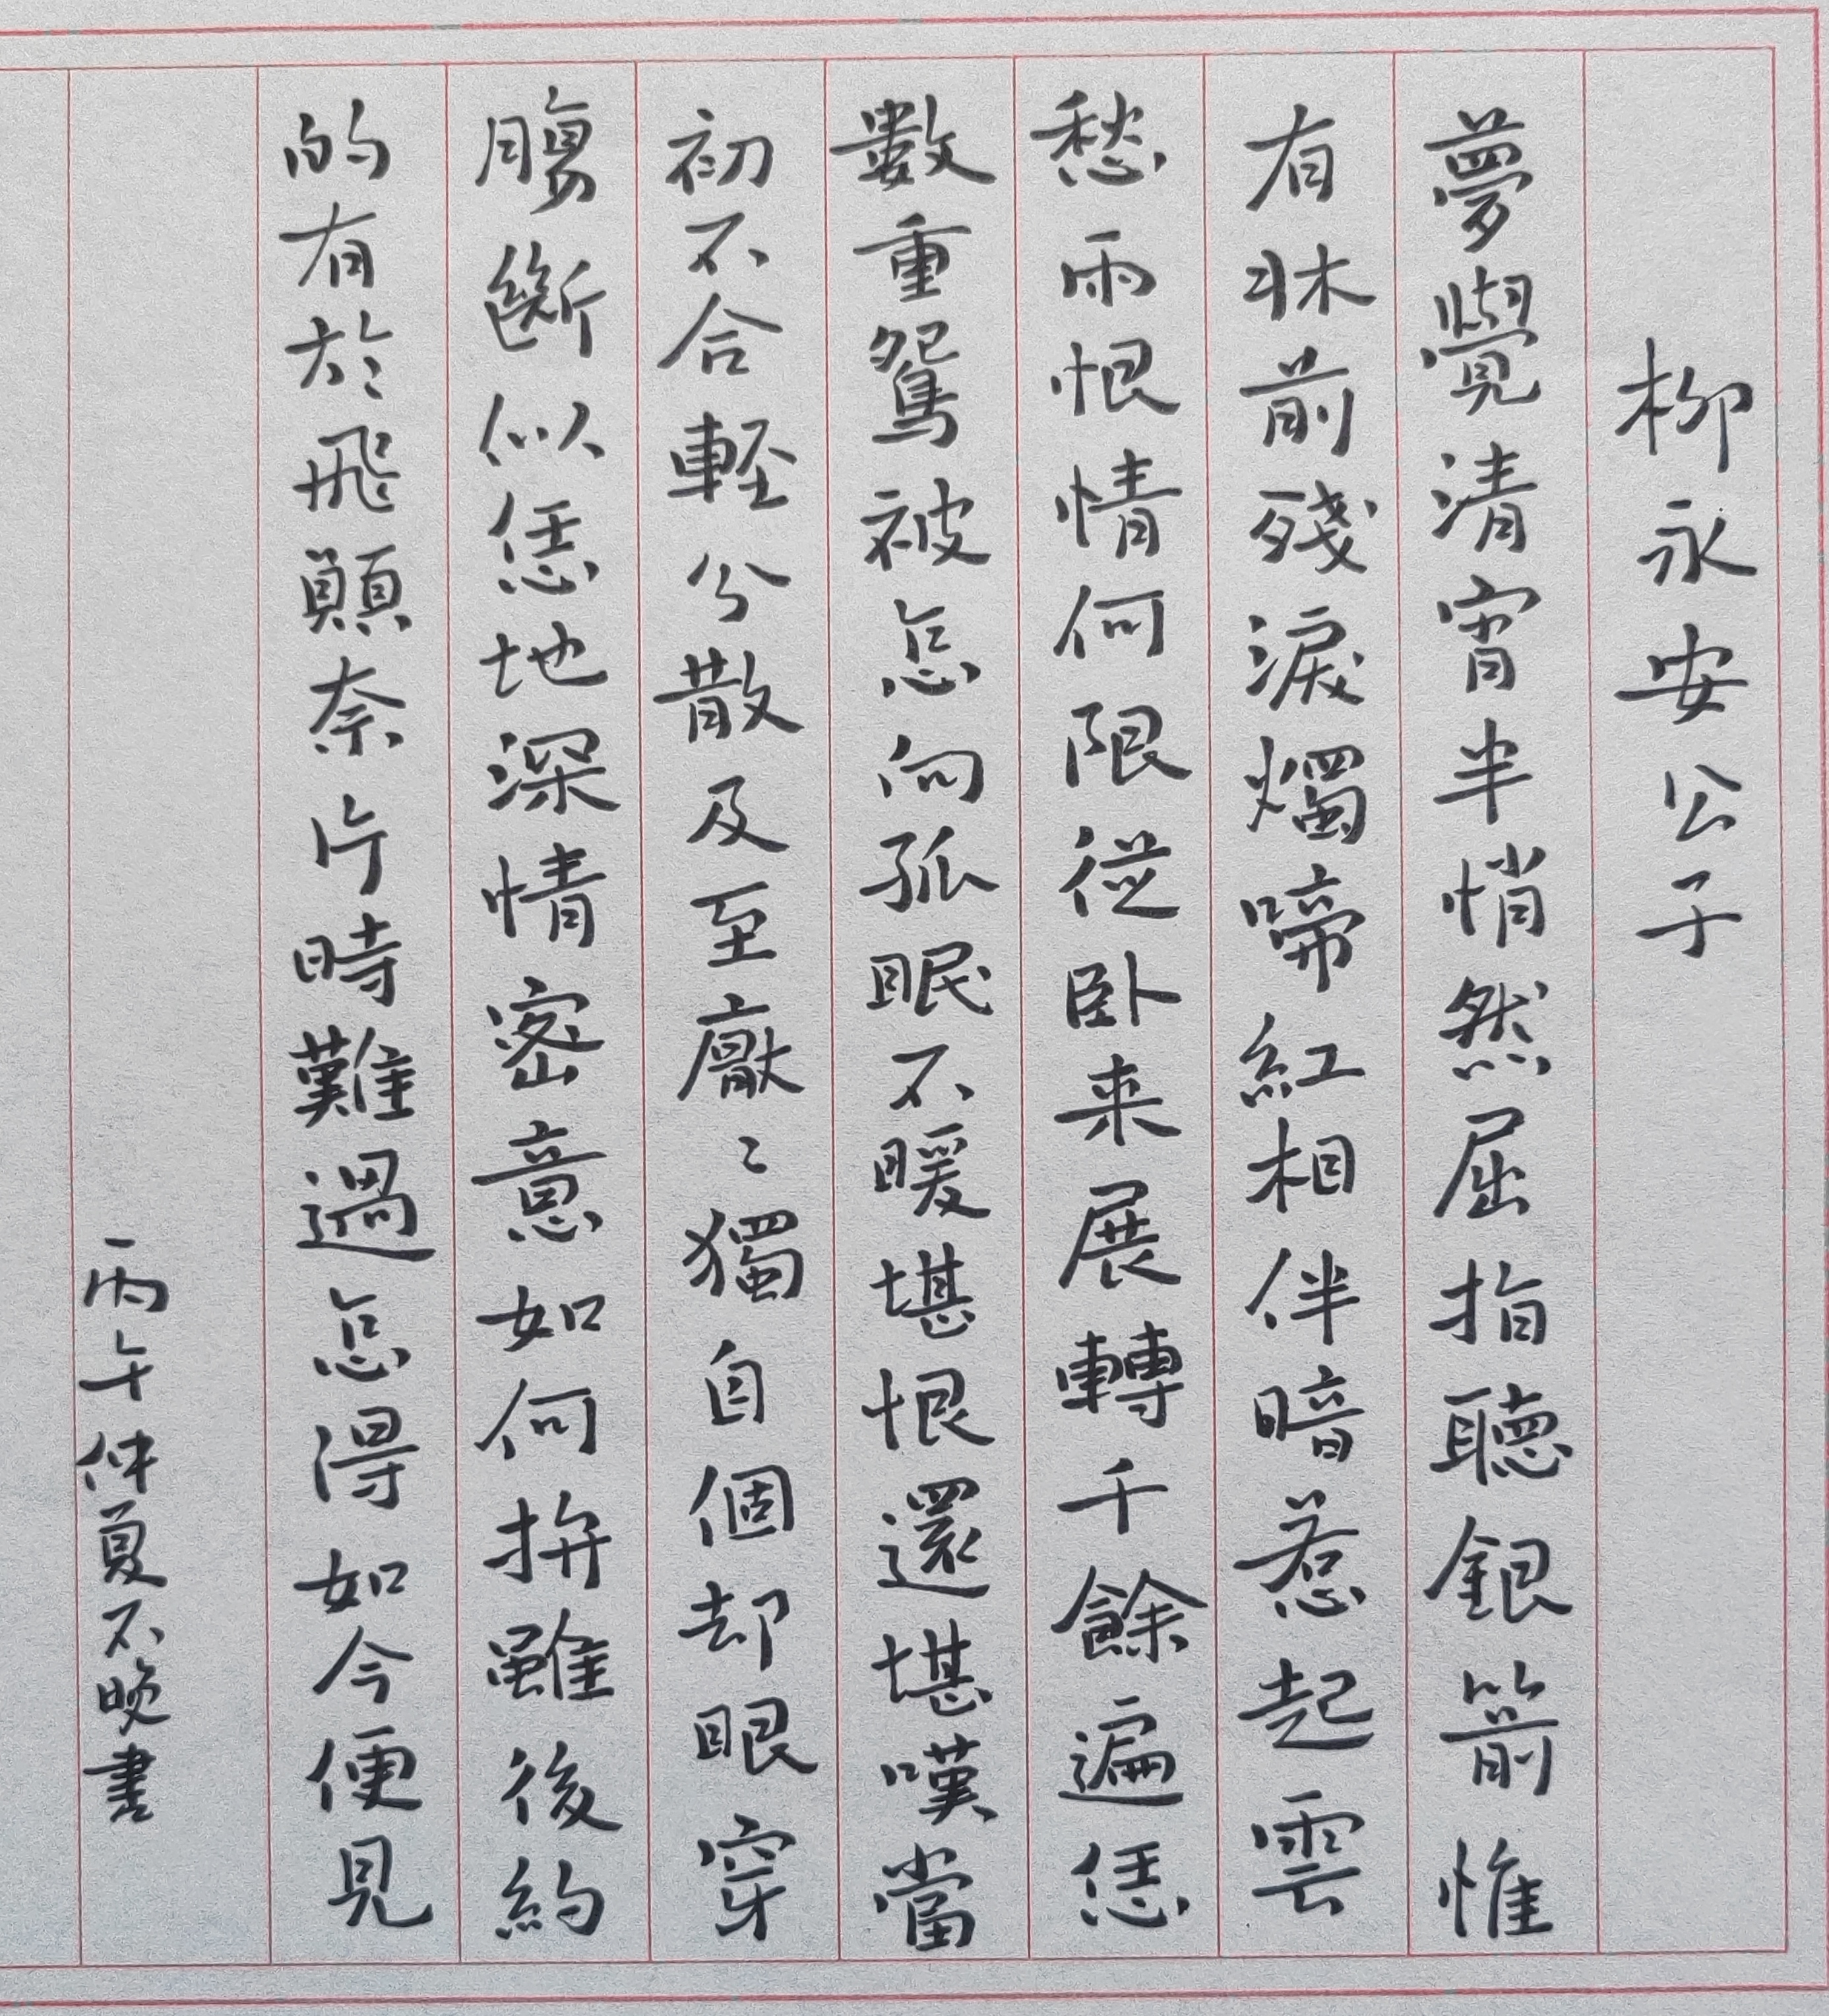 柳永安公子
夢覺清宵半悄然屈指聽銀箭惟
有牀前殘淚燭啼紅相伴暗惹起雲
愁雨恨情何限從卧来展轉千餘遍恁
數重鴛被怎向孤眠不暖堪恨還堪嘆當
初不合輕分散及至厭〻獨自個却眼穿
腸斷似恁地深情密意如何拚雖後約
的有於飛願奈片時難過怎得如今便見
丙午仲夏不晚書